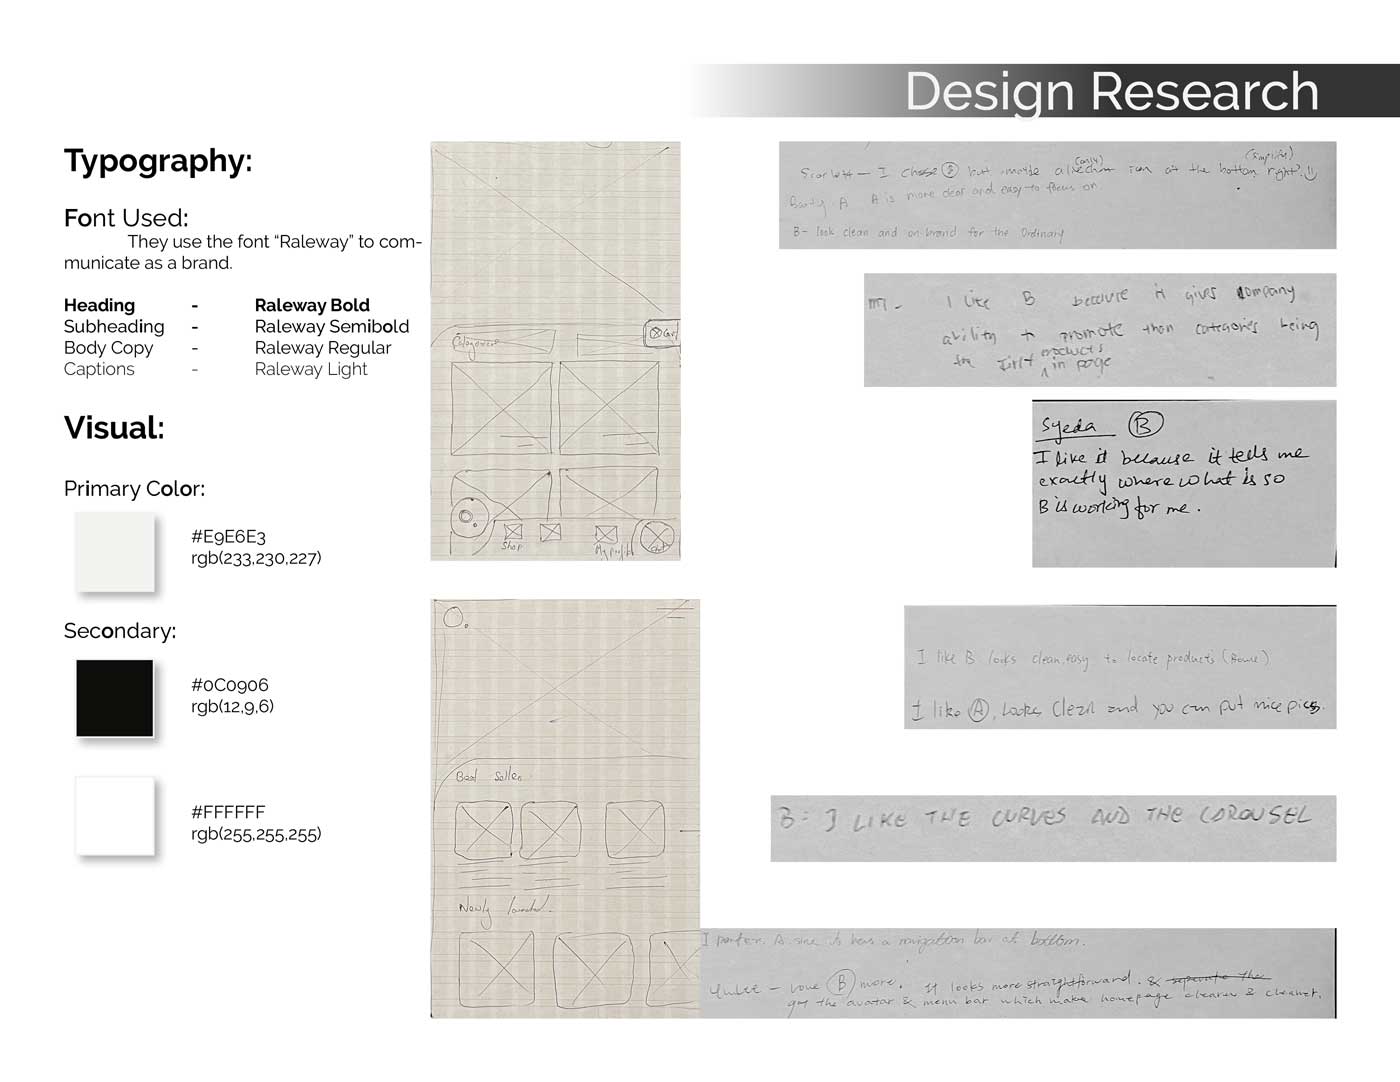 Design Research
Typography:
Font Used:
They use the font “Raleway” to com-
municate as a brand.
Heading - Raleway Bold
Subheading - Raleway Semibold
Body Copy - Raleway Regular
Captions - Raleway Light
Visual:
Primary Color:
#E9E6E3
rgb(233,230,227)
Secondary:
#0C0906
rgb(12,9,6)
#FFFFFF
rgb(255,255,255)
Shop
Best Seller
Newly
Scarlett - I chose but maybe at the bottom right?
(simplify)
A A is more clear and easy to focus on.
B- look clean and on brand for the Ordinary
I like B because it gives company
ability to promote than categories being
the first products in page
Syeda B
I like it because it tells me
exactly where what is so
B is working for me.
I like B looks clean, easy to locate products
I like A, looks clean and you can put nice pics.
B: I LIKE THE CURVES AND THE CAROUSEL
I prefer A since it has a navigation bar at bottom.
- Love B more. It looks more straightforward. &
the avatar & menu bar which make homepage clearer & cleaner.